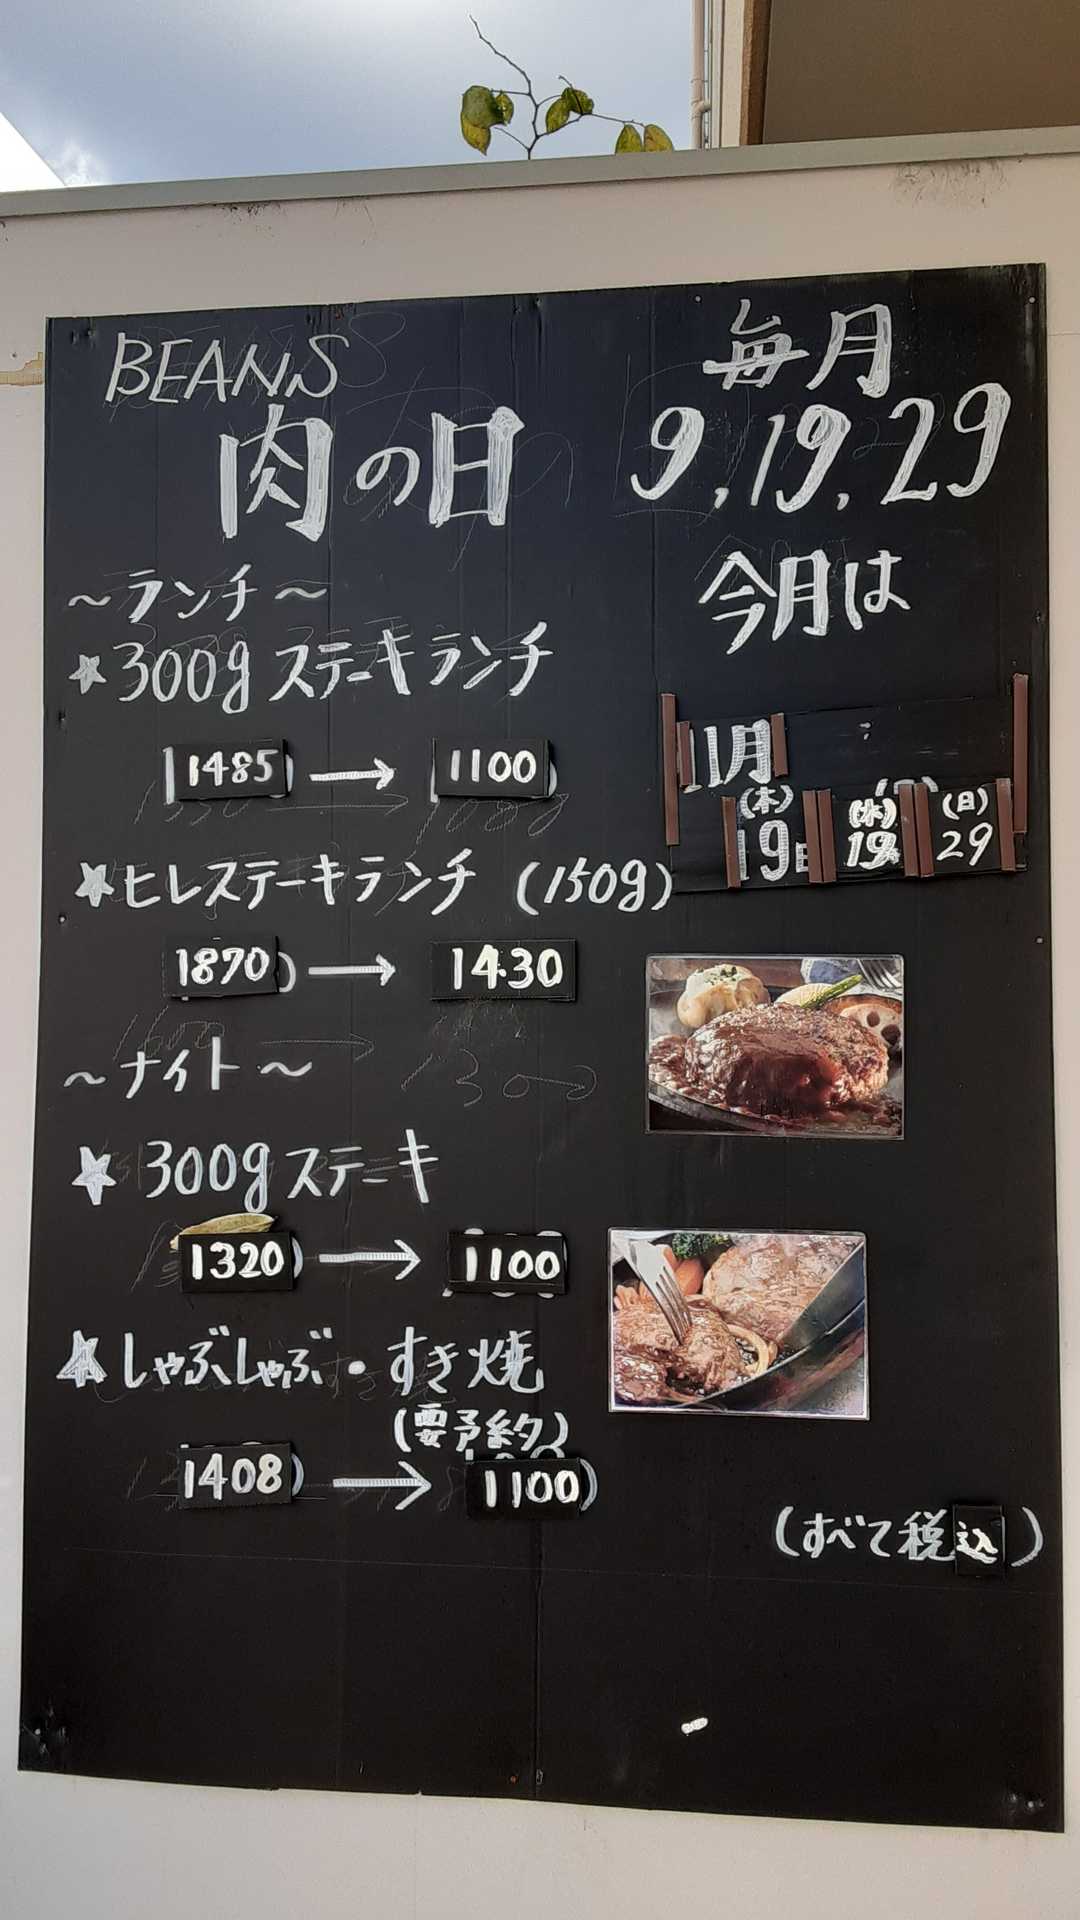 BEANS
肉の日
毎月
9,19,29
今月は
11月
(木) (水) (日)
19日 19 29
〜ランチ〜
★300gステーキランチ
1485 → 1100
★ヒレステーキランチ (150g)
1870 → 1430
〜ナイト〜
★300gステーキ
1320 → 1100
★しゃぶしゃぶ・すき焼
(要予約)
1408 → 1100
(すべて税込)